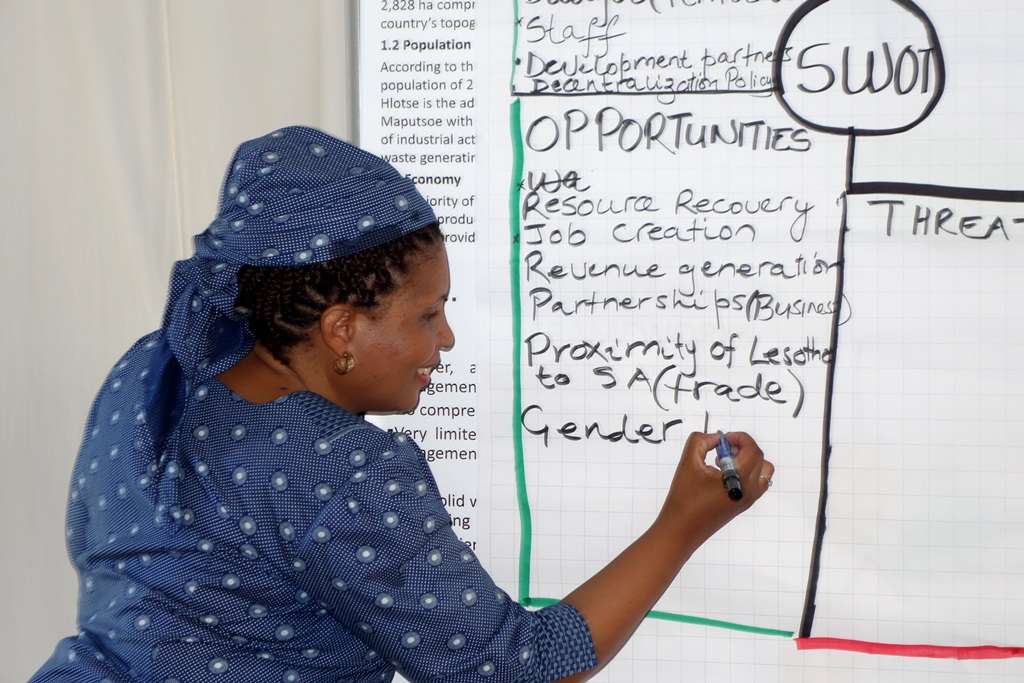 2,828 ha compr
country's topog
1.2 Population
According to th
population of 2
Hlotse is the ad
Maputsoe with
of industrial act
waste generatin
Economy
ority of
produ
provid
er, a
agemen
compre
Very limite
agemen
olid w
ing
Staff
Development partners
Decentralization Policy
SWOT
OPPORTUNITIES
Resource Recovery
Job creation
Revenue generation
Partnerships (Business)
Proximity of Lesotho
to SA (trade)
Gender
THREAT